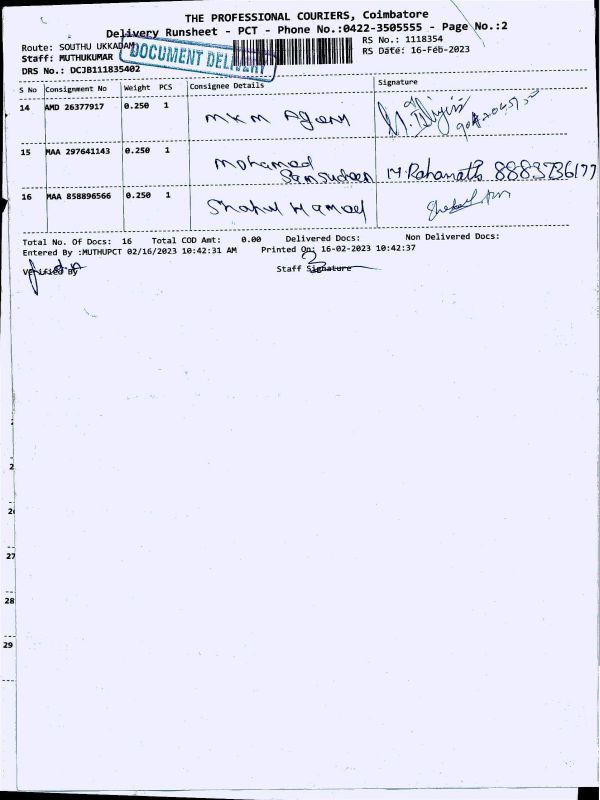 THE PROFESSIONAL COURIERS, Coimbatore
Delivery Runsheet - PCT - Phone No.:0422-3505555 - Page No.:2
Route: SOUTHU UKKADAM
RS No.: 1118354
Staff: MUTHUKUMAR
DOCUMENT DELIVERY
RS Date: 16-Feb-2023
DRS No.: DCJB111835402
S No Consignment No Weight PCS Consignee Details Signature
14 AMD 26377917 0.250 1 MKM Agency
15 MAA 297641143 0.250 1 Mohamed
Samsudeen M. Rahamath 8883736177
16 MAA 858896566 0.250 1 Shahul Hameed
Total No. Of Docs: 16 Total COD Amt: 0.00 Delivered Docs: Non Delivered Docs:
Entered By :MUTHUPCT 02/16/2023 10:42:31 AM Printed On: 16-02-2023 10:42:37
Verified By Staff Signature
2
20
27
28
29